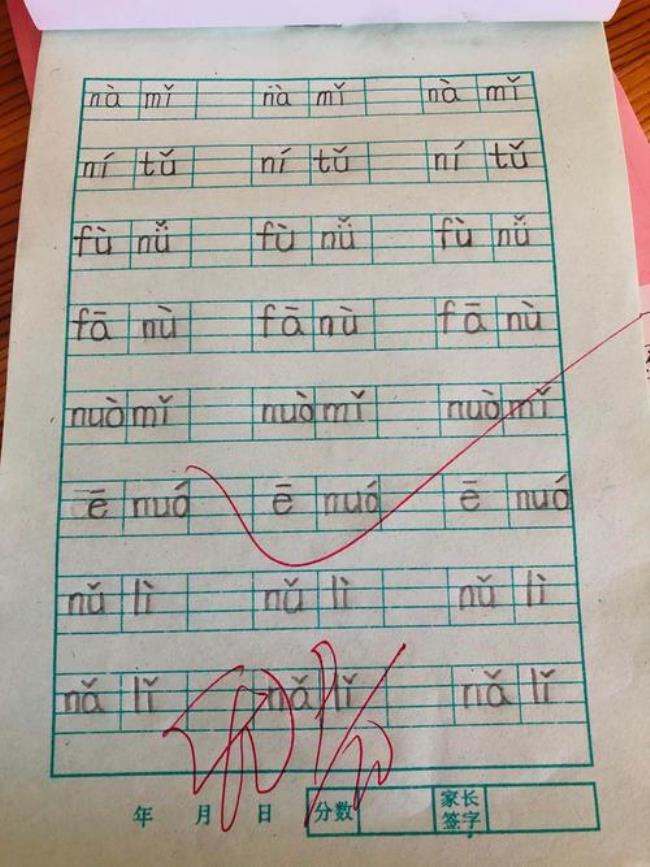 nà mǐ nà mǐ nà mǐ
ní tǔ ní tǔ ní tǔ
fù nǚ fù nǚ fù nǚ
fā nù fā nù fā nù
nuò mǐ nuò mǐ nuò mǐ
ē nuó ē nuó ē nuó
nǔ lì nǔ lì nǔ lì
nǎ lǐ nǎ lǐ nǎ lǐ
年 月 日 分数 家长签字